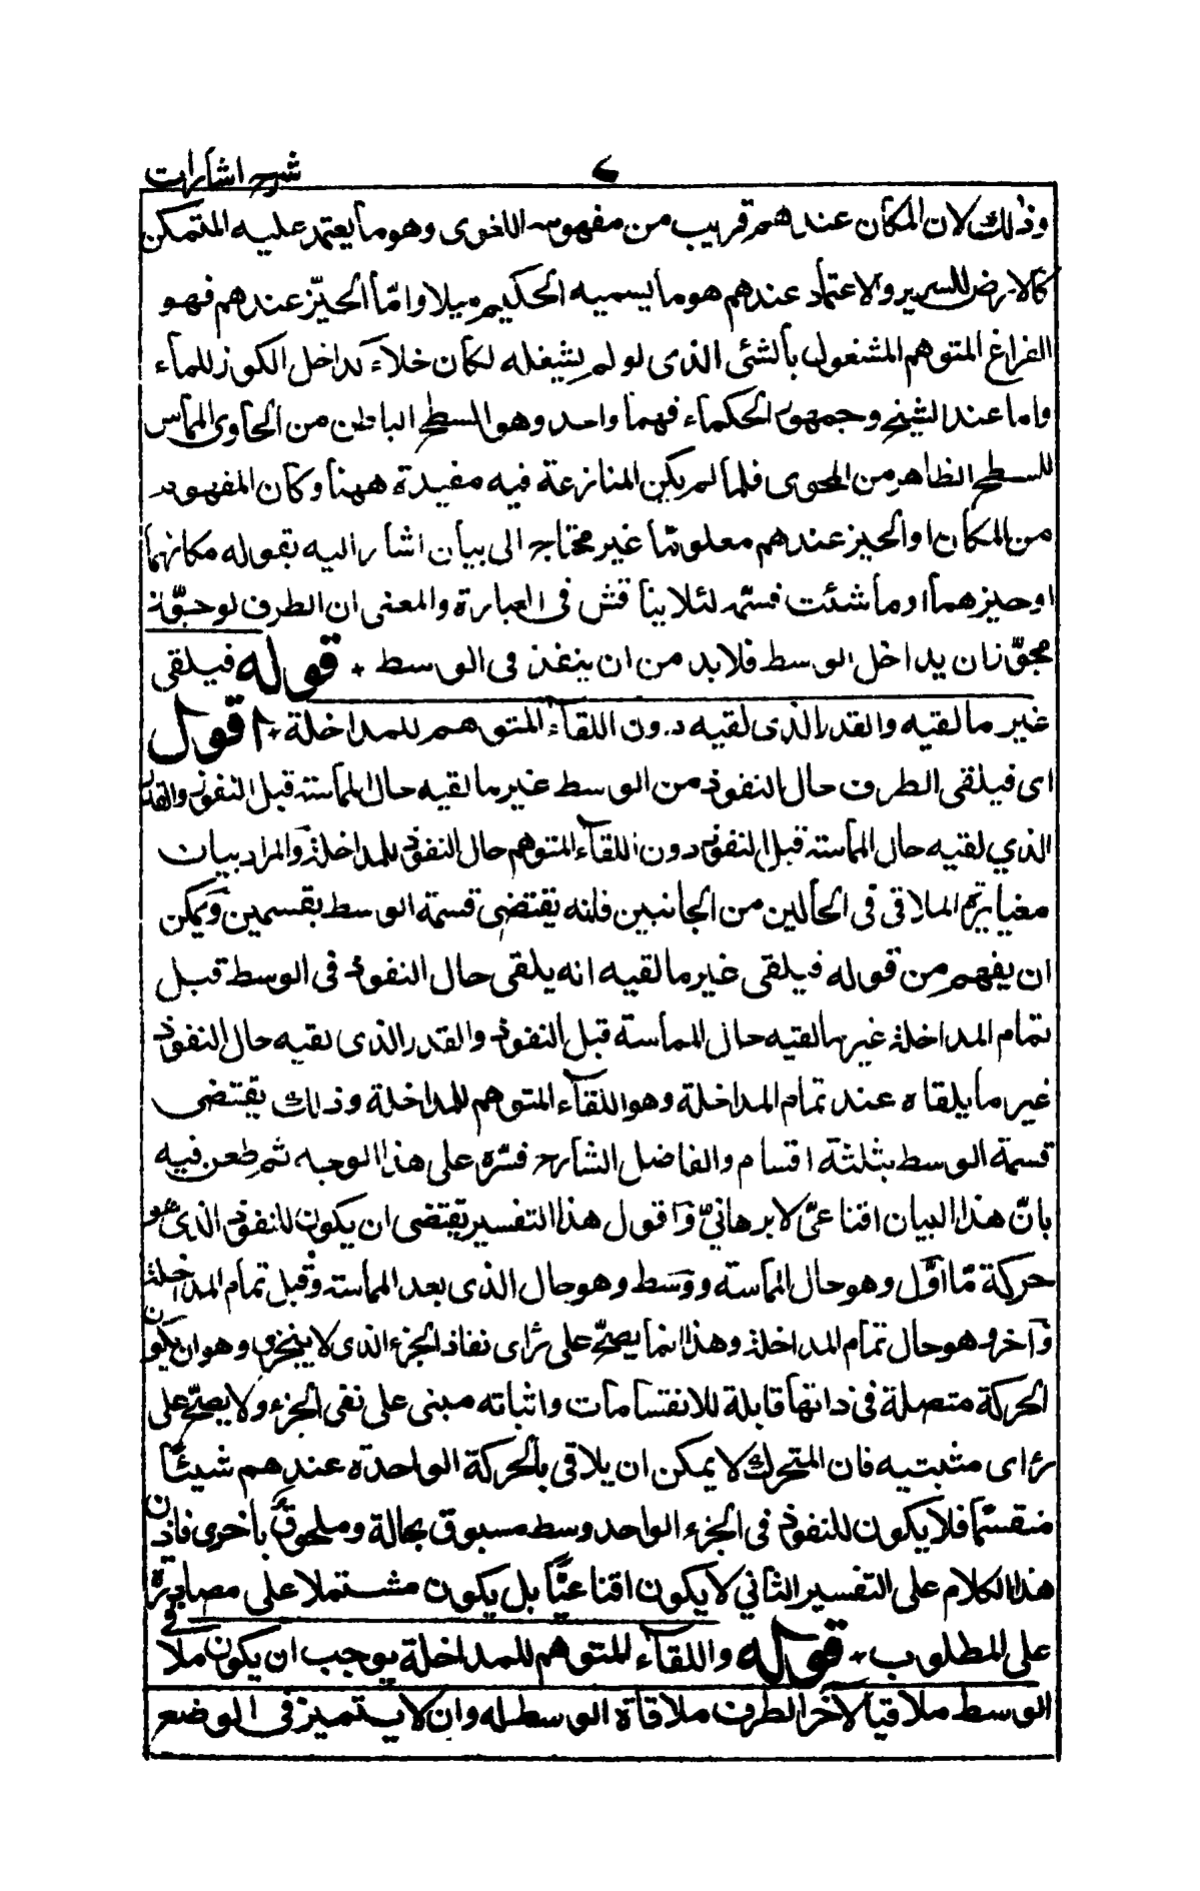 شرح اشارات
٧
وذلك لان المكان عندهم قريب من مفهومه اللغوى وهو ما يعتمد عليه المتمكن
كالارض للسرير والاعتماد عندهم هو ما يسميه الحكيم ميلا واما الحيّز عندهم فهو
الفراغ المتوهم المشغول بالشئ الذى لو لم يشغله لكان خلاء كداخل الكوز للماء
واما عند الشيخ وجمهور الحكماء فهما واحد وهو السطح الباطن من الحاوى المماس
للسطح الظاهر من المحوى فلما لم يكن المنازعة فيه مفيدة ههنا وكان المفهوم
من المكان او الحيز عندهم معلومًا غير محتاج الى بيان اشار اليه بقوله مكانهما
او حيزهما او ما شئت فسمّه لئلا يناقش فى العبارة والمعنى ان الطرف لو جوّز
مجوّز ان يداخل الوسط فلا بد من ان ينفذ فى الوسط ٭ قوله فيلقى
غير ما لقيه والقدر الذى لقيه دون اللقاء المتوهم للمداخلة ٭ اقول
اى فيلقى الطرف حال النفوذ من الوسط غير ما لقيه حال المماسة قبل النفوذ والقدر
الذي لقيه حال المماسة قبل النفوذ دون اللقاء المتوهم حال النفوذ للمداخلة والمراد بيان
مغايرة الملاقى فى الحالين من الجانبين فانه يقتضى قسمة الوسط بقسمين ويمكن
ان يفهم من قوله فيلقى غير ما لقيه انه يلقى حال النفوذ فى الوسط قبل
تمام المداخلة غير ما لقيه حال المماسة قبل النفوذ والقدر الذى لقيه حال النفوذ
غير ما يلقاه عند تمام المداخلة وهو اللقاء المتوهم للمداخلة وذلك يقتضى
قسمة الوسط بثلثة اقسام والفاضل الشارح فسّره على هذا الوجه ثم طعن فيه
بانّ هذا البيان اقناعىّ لا برهانىّ واقول هذا التفسير يقتضى ان يكون للنفوذ الذى هو
حركة مّا اوّل وهو حال المماسة ووسط وهو حال الذى بعد المماسة وقبل تمام المداخلة
وآخر وهو حال تمام المداخلة وهذا انما يصحّ على راى نفاة الجزء الذى لا يتجزى وهو ان يكون
الحركة متصلة فى ذاتها قابلة للانقسامات واثباته مبنى على نفى الجزء ولا يصحّ على
راى مثبتيه فان المتحرك لا يمكن ان يلاقى بالحركة الواحدة عندهم شيئًا
منقسمًا فلا يكون للنفوذ فى الجزء الواحد وسط مسبوق بحالة وملحوق باخرى فاذن
هذا الكلام على التفسير الثاني لا يكون اقناعيًّا بل يكون مشتملا على مصادرة
على المطلوب ٭ قوله واللقاء المتوهم للمداخلة يوجب ان يكون ملاقى
الوسط ملاقيا لآخر الطرف ملاقاة الوسط له وان لا يتميز فى الوضع